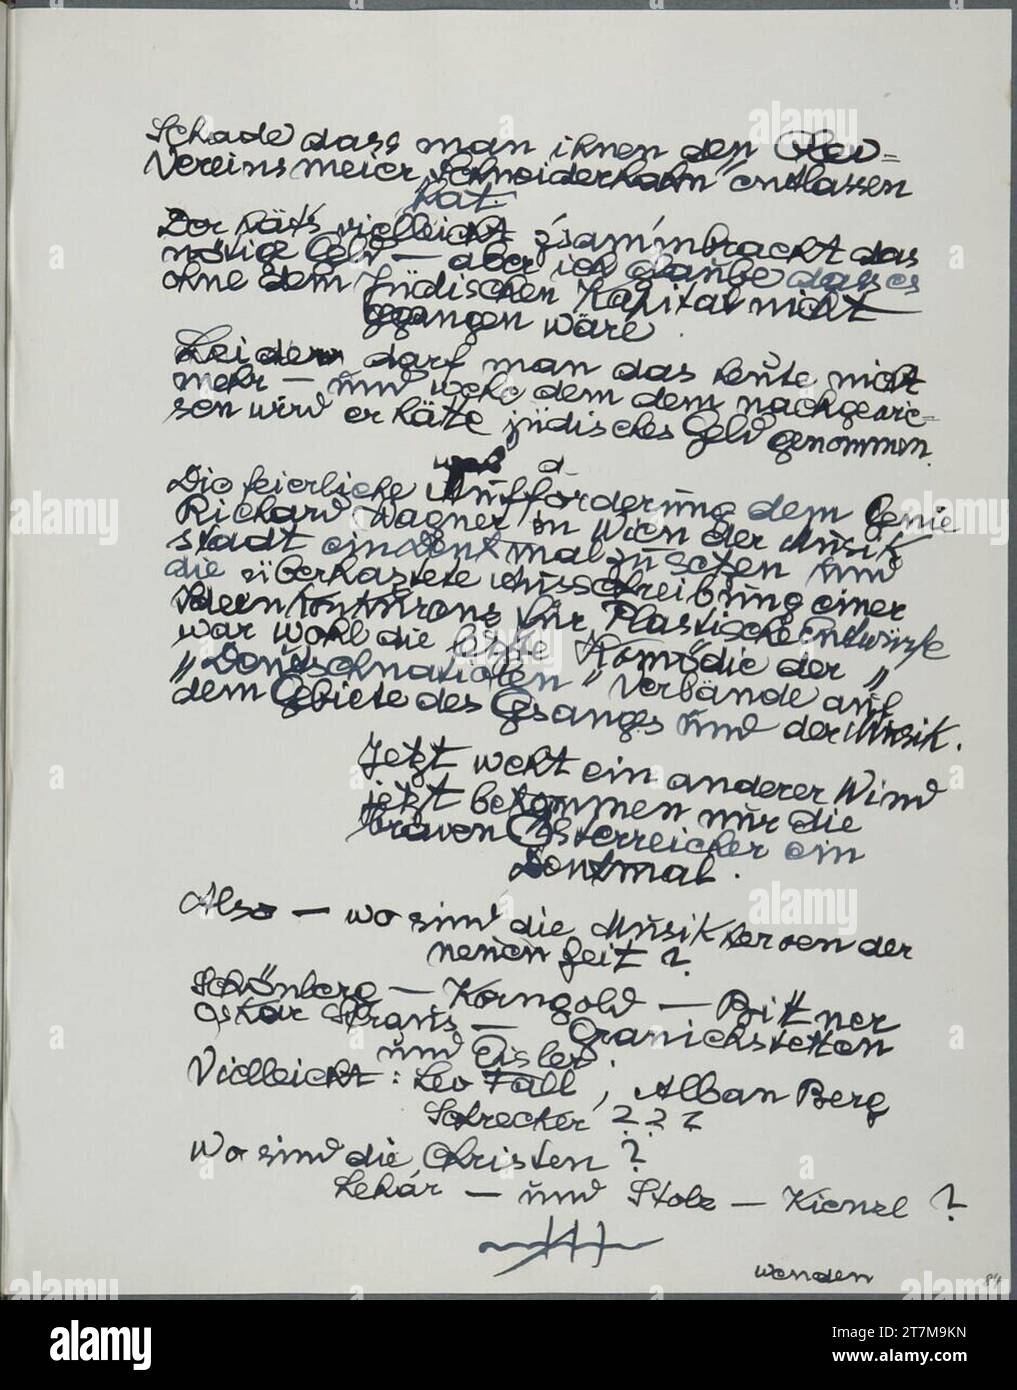 Schade dass man ihnen den Ober=
Vereinsmeier „Schneiderhahn" entlassen
hat.
Der häts vielleicht z'sammbracht das
nötige Geld — aber ich glaube dass es
ohne dem Jüdischen Kapital nicht
gegangen wäre.
Leider darf man das heute nicht
mehr — und wehe dem dem nachgewie=
sen wird er hätte jüdisches Geld genommen.
Die feierliche Aufforderung dem Genie
Richard Wagner in Wien der Musik
stadt ein Denkmal zu setzen und
die überhastete Ausschreibung einer
Ideenkonkurens für Plastische Entwürfe
war wohl die letzte Komödie der
„Deutschnationalen" Verbände auf
dem Gebiete des Gesanges und der Musik.
Jetzt weht ein anderer Wind
jetzt bekommen nur die
braven Österreicher ein
Denkmal.
Also — wo sind die Musikheroen der
neuen Zeit?
Schönberg — Korngold — Bittner
Oskar Straus — Granichstetten
und Eisler.
Vielleicht: Leo Fall, Alban Berg
Schrecker ? ? ?
Wo sind die Christen?
Lehár — und Stolz — Kienzl ?
wenden
84
alamy
Image ID: 2T7M9KN
www.alamy.com